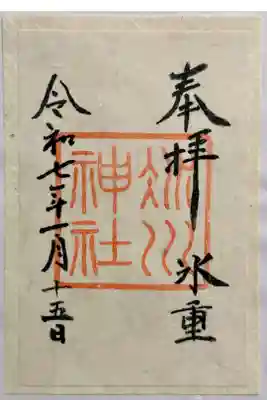 奉拝 氷重
冰川
神社
令和七年一月十五日